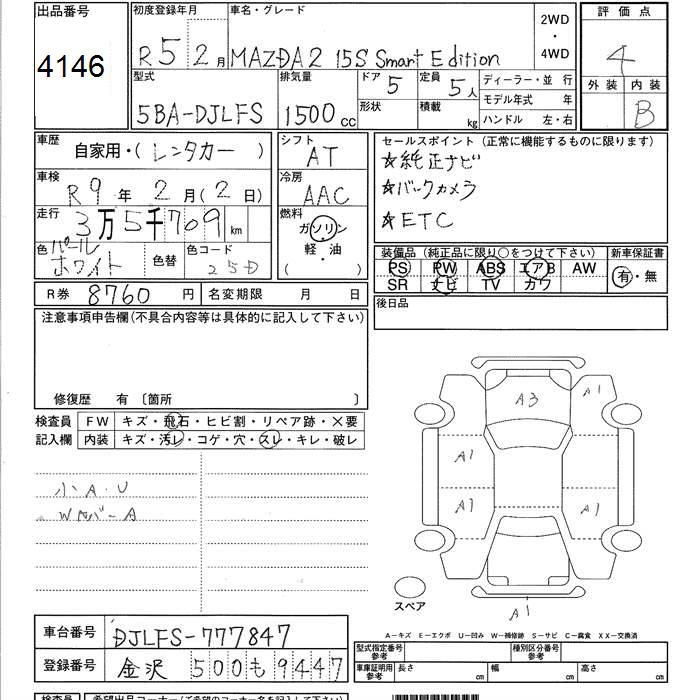 出品番号
4146
初度登録年月
R5 2月
車名・グレード
MAZDA2 15S Smart Edition
2WD
・
4WD
評価点
4
外装 内装
B
型式
5BA-DJLFS
排気量
1500cc
ドア 5
形状
定員 5人
積載 kg
ディーラー・並 行
モデル年式 年
ハンドル 左・右
車歴
自家用・(レンタカー)
シフト
AT
セールスポイント(正常に機能するものに限ります)
☆純正ナビ
☆バックカメラ
☆ETC
車検
R9年2月(2日)
冷房
AAC
走行
3万5千769km
燃料
ガソリン
軽・油
( )
色 パール
ホワイト
色替
色コード
25D
装備品(純正品に限り○をつけて下さい)
PS PW ABS エアB AW
SR ナビ TV カワ
新車保証書
有・無
R券 8760円
名変期限 月 日
後日品
注意事項申告欄(不具合内容等は具体的に記入して下さい)
修復歴 有〔箇所 〕
検査員
記入欄
FW キズ・飛石・ヒビ割・リペア跡・×要
内装 キズ・汚レ・コゲ・穴・スレ・キレ・破レ
小A.U
A3
A1
A1
A1
A1
A1
スペア
A―キズ E―エクボ U―凹み W―補修跡 S―サビ C―腐食 XX―交換済
車台番号
DJLFS-777847
登録番号
金沢 500も9447
型式指定番号
参考
種別区分番号
参考
車庫証明用
参考
長さ cm
幅 cm
高さ cm
検査員
希望出品コーナー(ご希望のコーナー